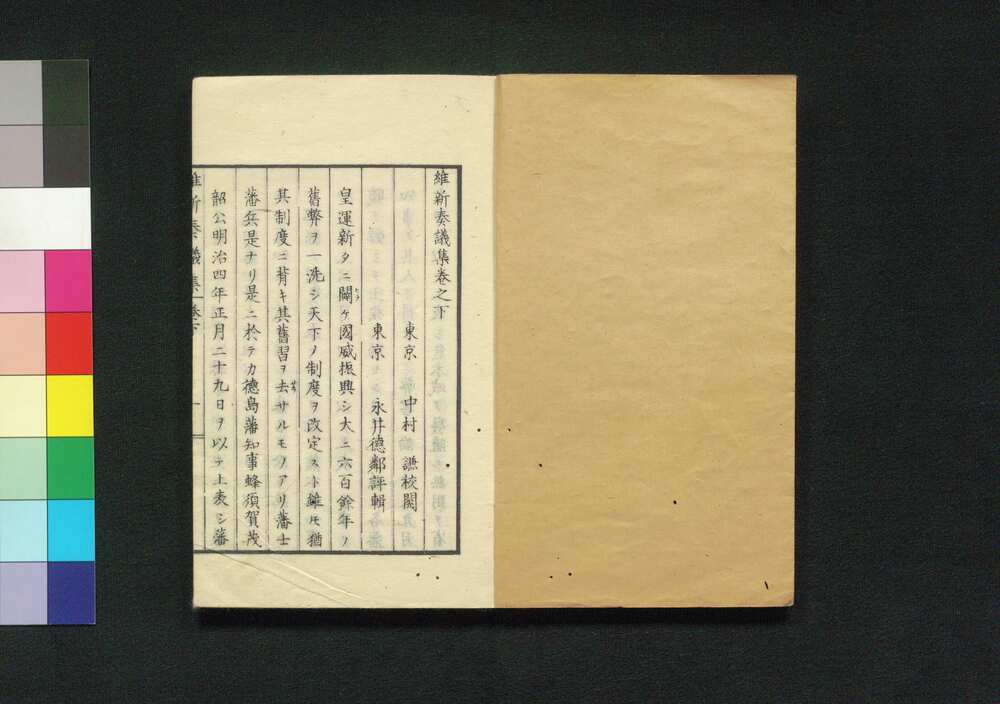 維新奏議集卷之下
東京 中村 謙校閱
東京 永井德鄰評輯
皇運新タニ闢ケ國威振興シ大ニ六百餘年ノ
舊弊ヲ一洗シ天下ノ制度ヲ改定スト雖モ猶
其制度ニ背キ其舊習ヲ去サルモノアリ藩士
藩兵是ナリ是ニ於テカ德島藩知事蜂須賀茂
韶公明治四年正月二十九日ヲ以テ上表シ藩
維新奏議集 卷下 一